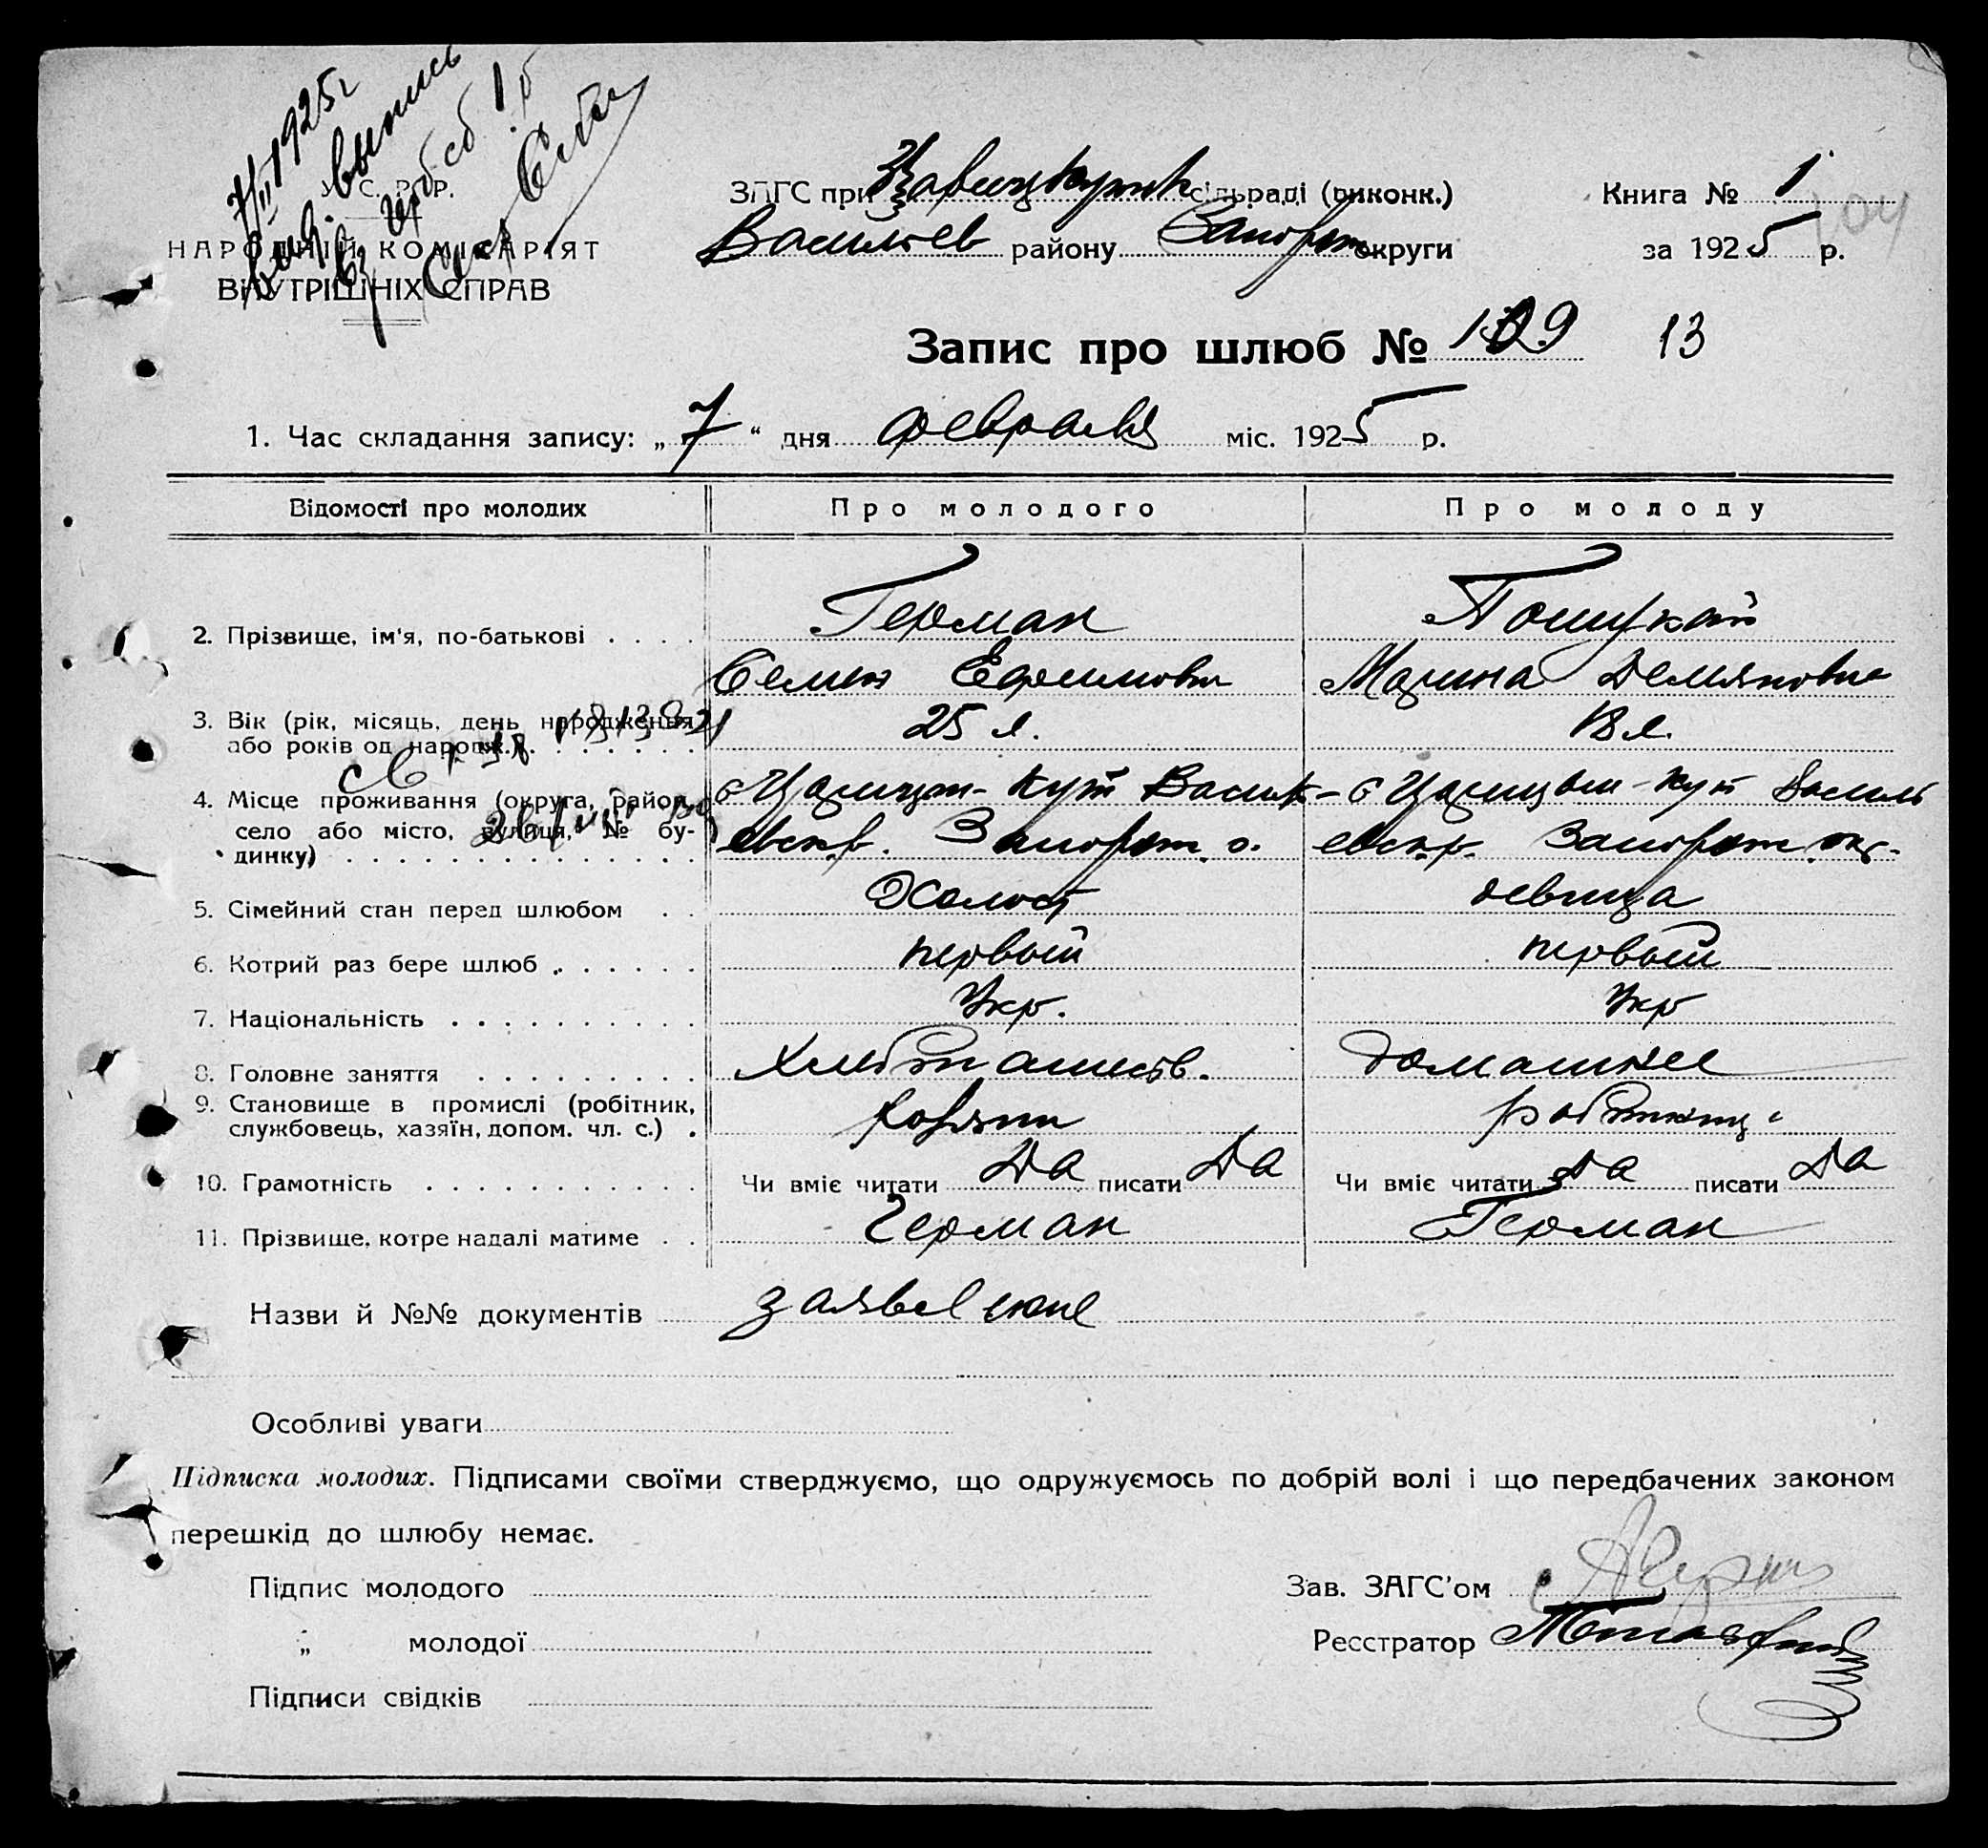 7/II 1925 г
выпись
У. С. Р. Р.
НАРОДНІЙ КОМІСАРІЯТ
ВНУТРІШНІХ СПРАВ
ЗАГС при сільраді (виконк.)
Васильев району Запорож округи
Книга № 1
за 1925 р.
104
Запис про шлюб № 109 13
1. Час складання запису: „7“ дня февраля міс. 1925 р.
Відомості про молодих Про молодого Про молоду
2. Прізвище, ім'я, по-батькові . . . . Герман
Семен Ефимович Марина Демяновна
3. Вік (рік, місяць, день народження 25 л. 18 л.
або років од народж.) . . . . . . .
4. Місце проживання (округа, район, с Царицын-Кут Василь- с Царицын-Кут Василь
село або місто, вулиця, № бу- евск.р. Запорож. о. евск.р. Запорож. окр.
динку) . . . . . . . . . . . . . .
5. Сімейний стан перед шлюбом . . Холост девица
6. Котрий раз бере шлюб . . . . . . первый первый
7. Національність . . . . . . . . . . Укр. Укр
8. Головне заняття . . . . . . . . . хлебопашеств. домашнее
9. Становище в промислі (робітник,
службовець, хазяїн, допом. чл. с.) . хозяин
10. Грамотність . . . . . . . . . . . Чи вміє читати Да писати Да Чи вміє читати Да писати Да
11. Прізвище, котре надалі матиме . . Герман Герман
Назви й №№ документів заявление
Особливі уваги
Підписка молодих. Підписами своїми стверджуємо, що одружуємось по добрій волі і що передбачених законом
перешкід до шлюбу немає.
Підпис молодого
„ молодої
Підписи свідків
Зав. ЗАГС’ом
Реєстратор